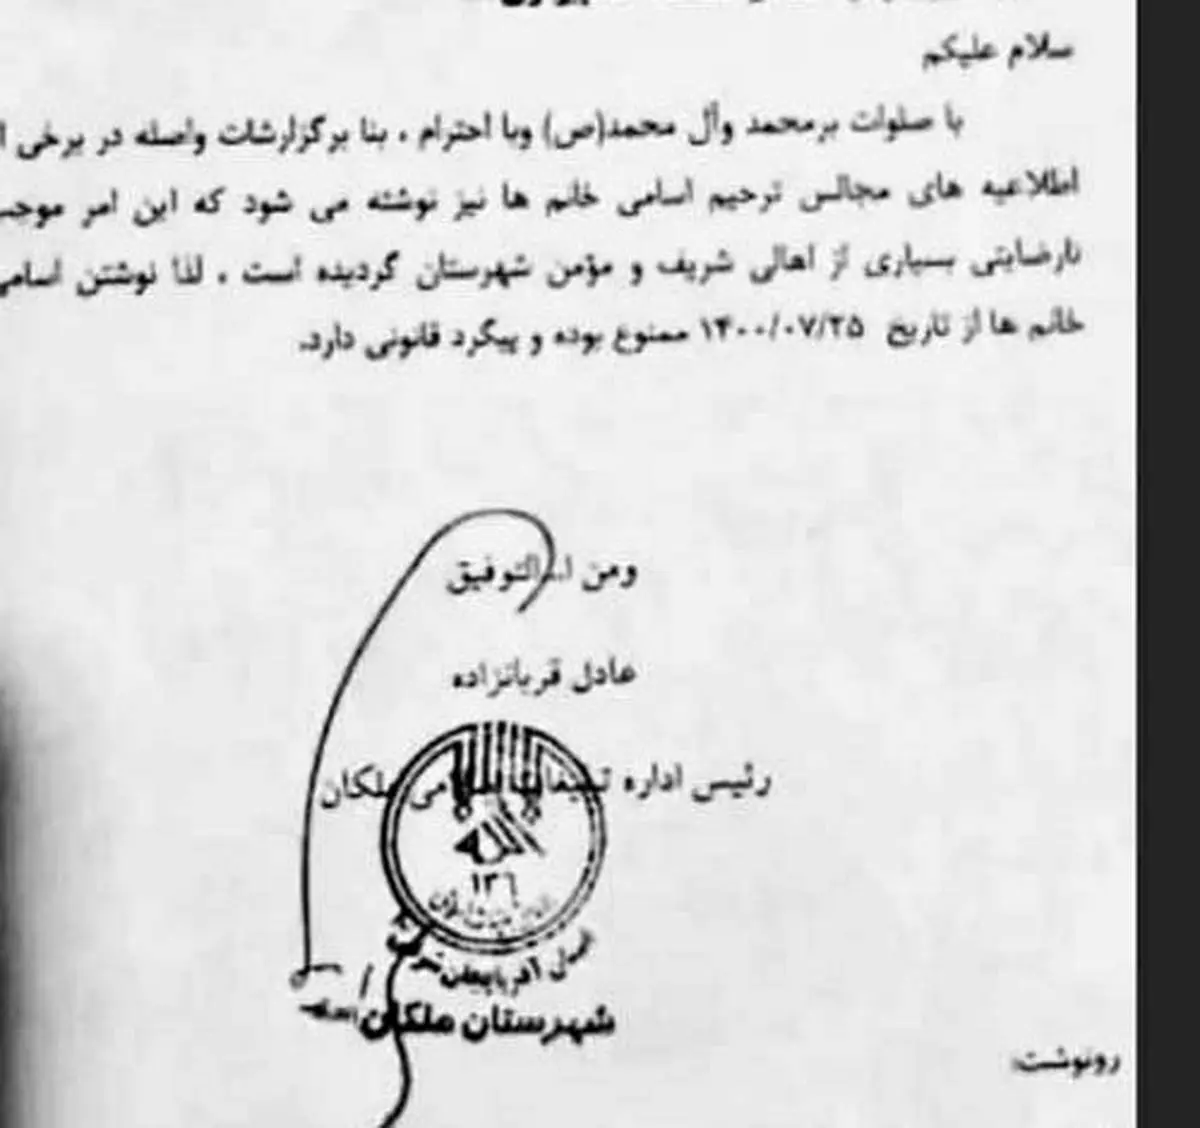 سلام علیکم
با صلوات برمحمد وآل محمد(ص) وبا احترام ، بنا برگزارشات واصله در برخی
اطلاعیه های مجالس ترحیم اسامی خانم ها نیز نوشته می شود که این امر موجب
نارضایتی بسیاری از اهالی شریف و مؤمن شهرستان گردیده است ، لذا نوشتن اسامی
خانم ها از تاریخ ۱۴۰۰/۰۷/۲۵ ممنوع بوده و پیگرد قانونی دارد.
ومن التوفیق
عادل قربانزاده
رئیس اداره تبلیغات اسلامی ملکان
۱۳۶
استان آذربایجان شرقی
شهرستان ملکان
رونوشت: